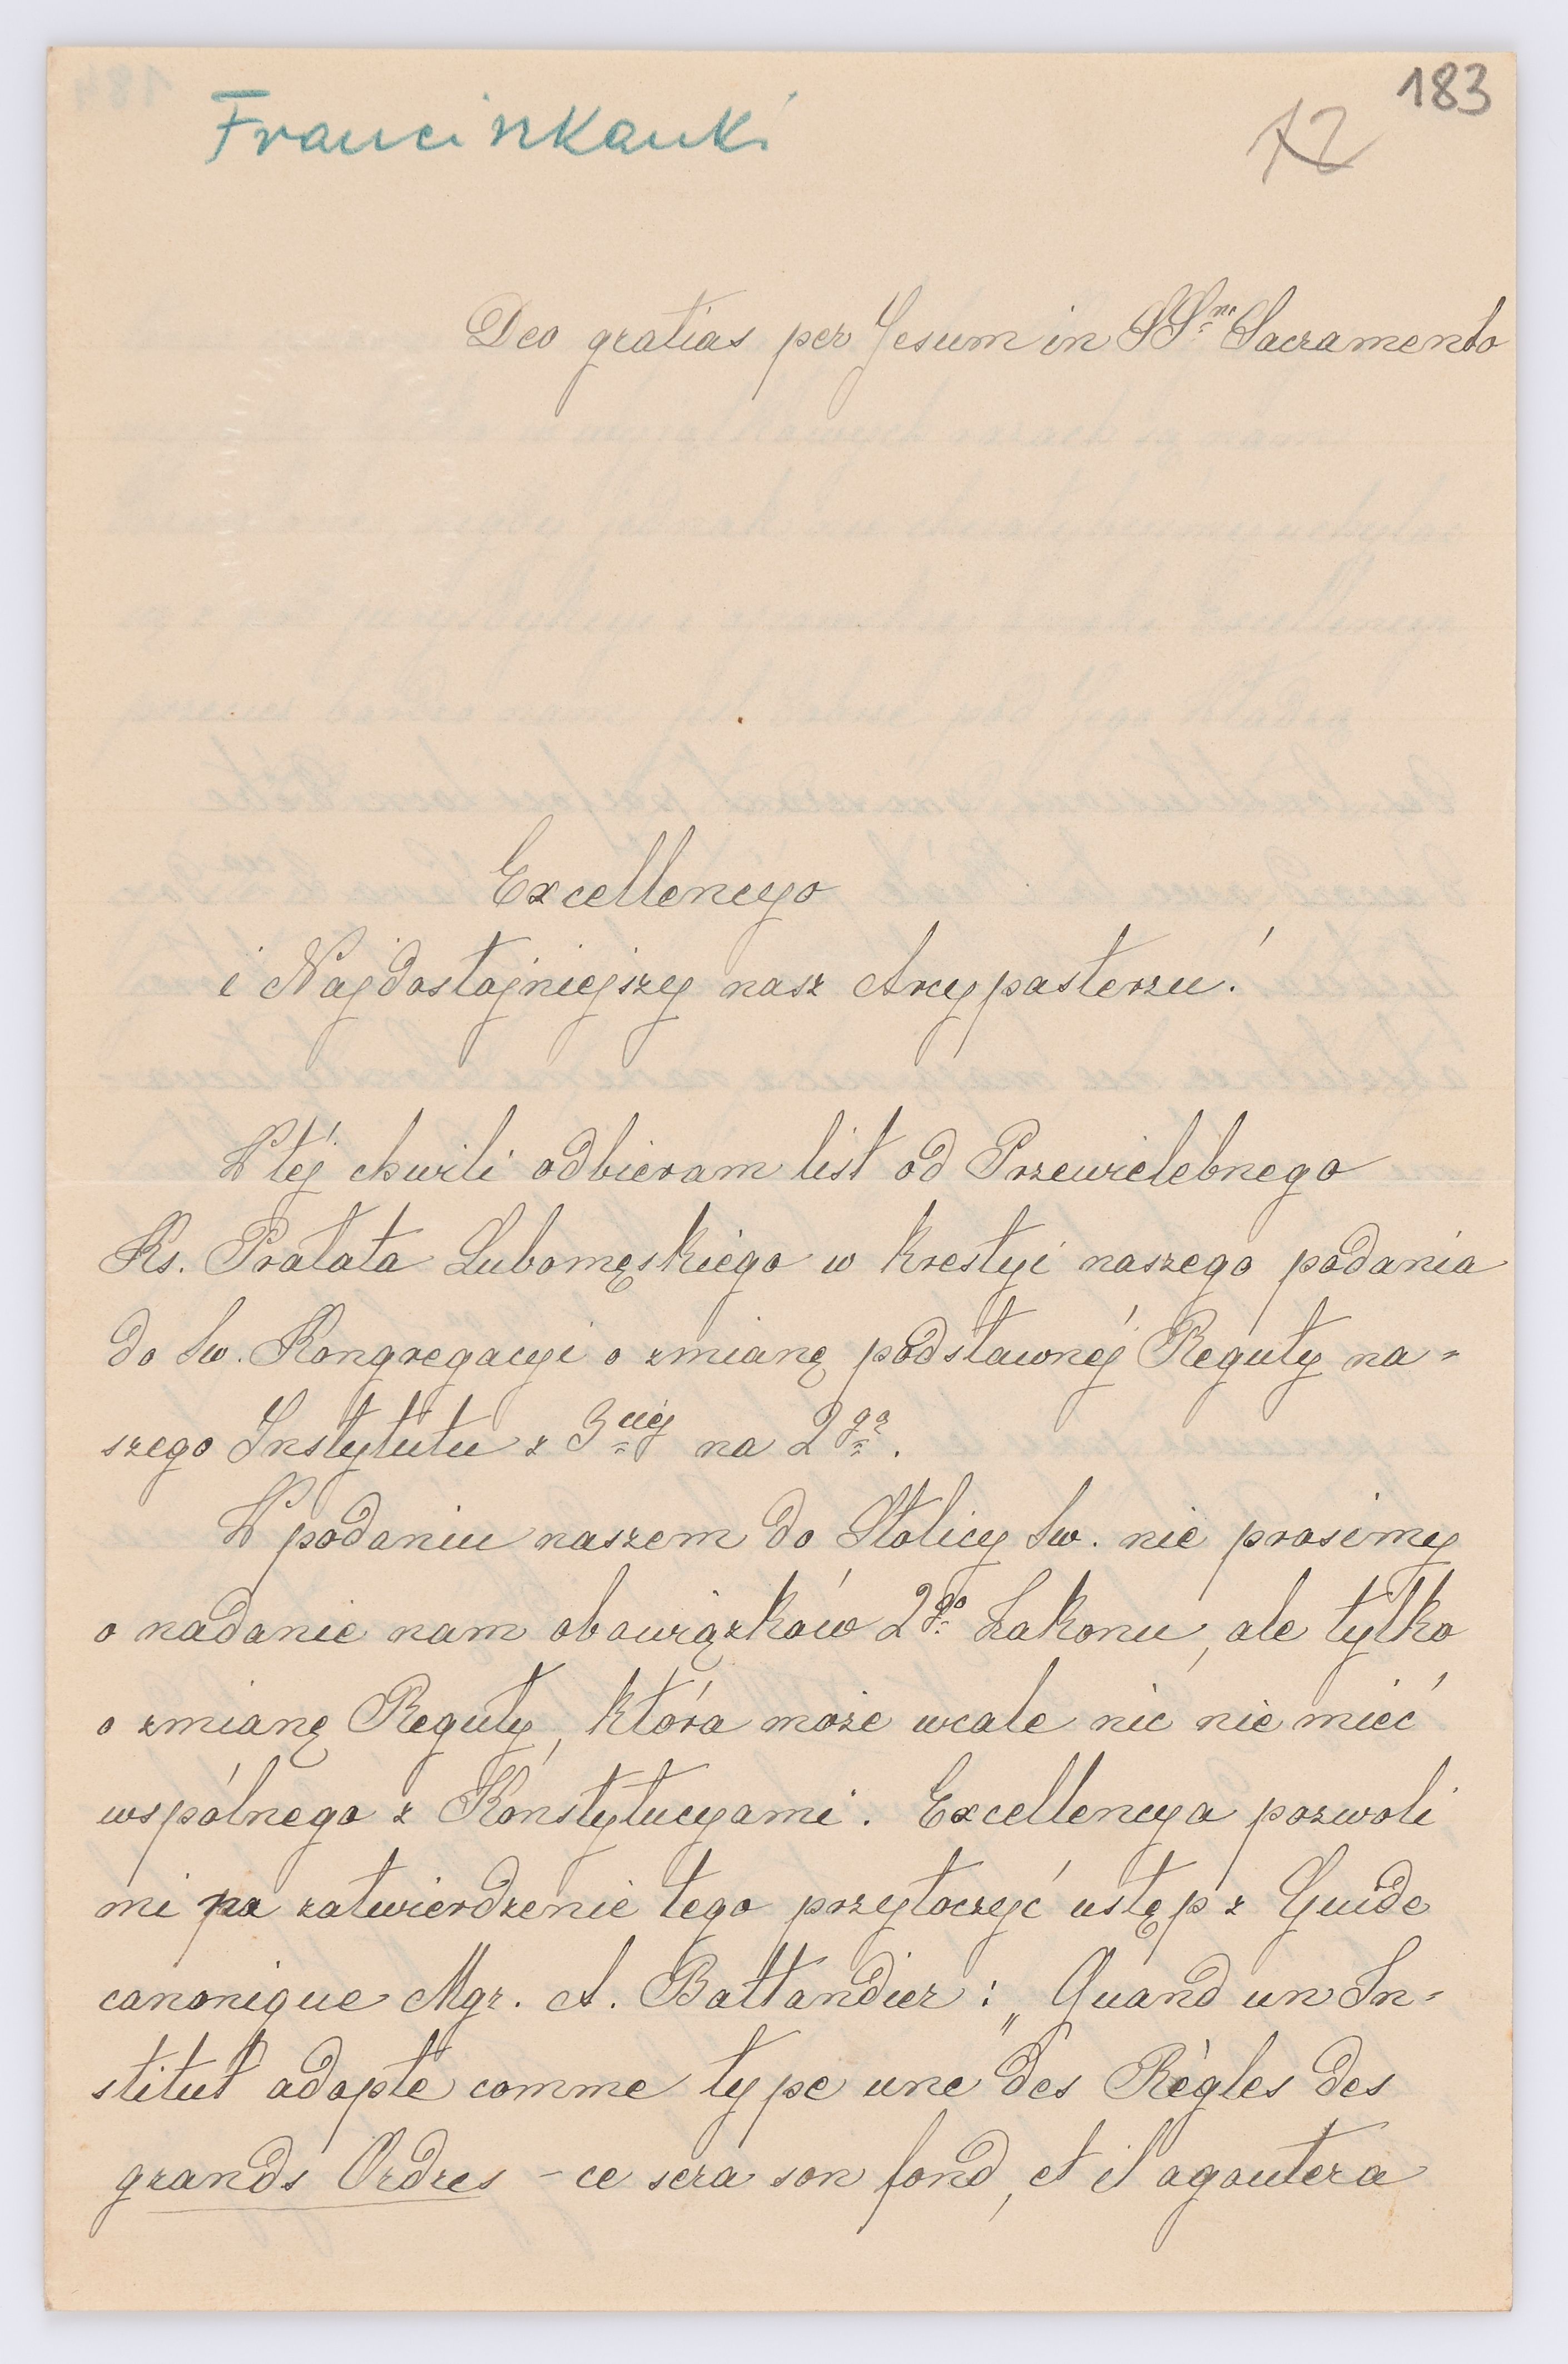 183
Franciszkanki
72
Deo gratias per Jesum in SS.mo Sacramento
Excellencyo
i Najdostojniejszy nasz Arcypasterzu!
W téj chwili odbieram list od Przewielebnego
Ks. Prałata Lubomęskiego w kwestyi naszego podania
do Św. Kongregacyi o zmianę podstawnéj Reguły na-
szego Instytutu z 3ciéj na 2gą.
W podaniu naszem do Stolicy Św. nie prosimy
o nadanie nam obowiązków 2go Zakonu, ale tylko
o zmianę Reguły, która może wcale nic nie mieć
wspólnego z Konstytucyami. Excellencya pozwoli
mi na zatwierdzenie tego przytoczyć ustęp z Guide
canonique Mgr. A. Battandier: „Quand un In-
stitut adopte comme type une des Règles des
grands Ordres - ce sera son fond, et il agoutera